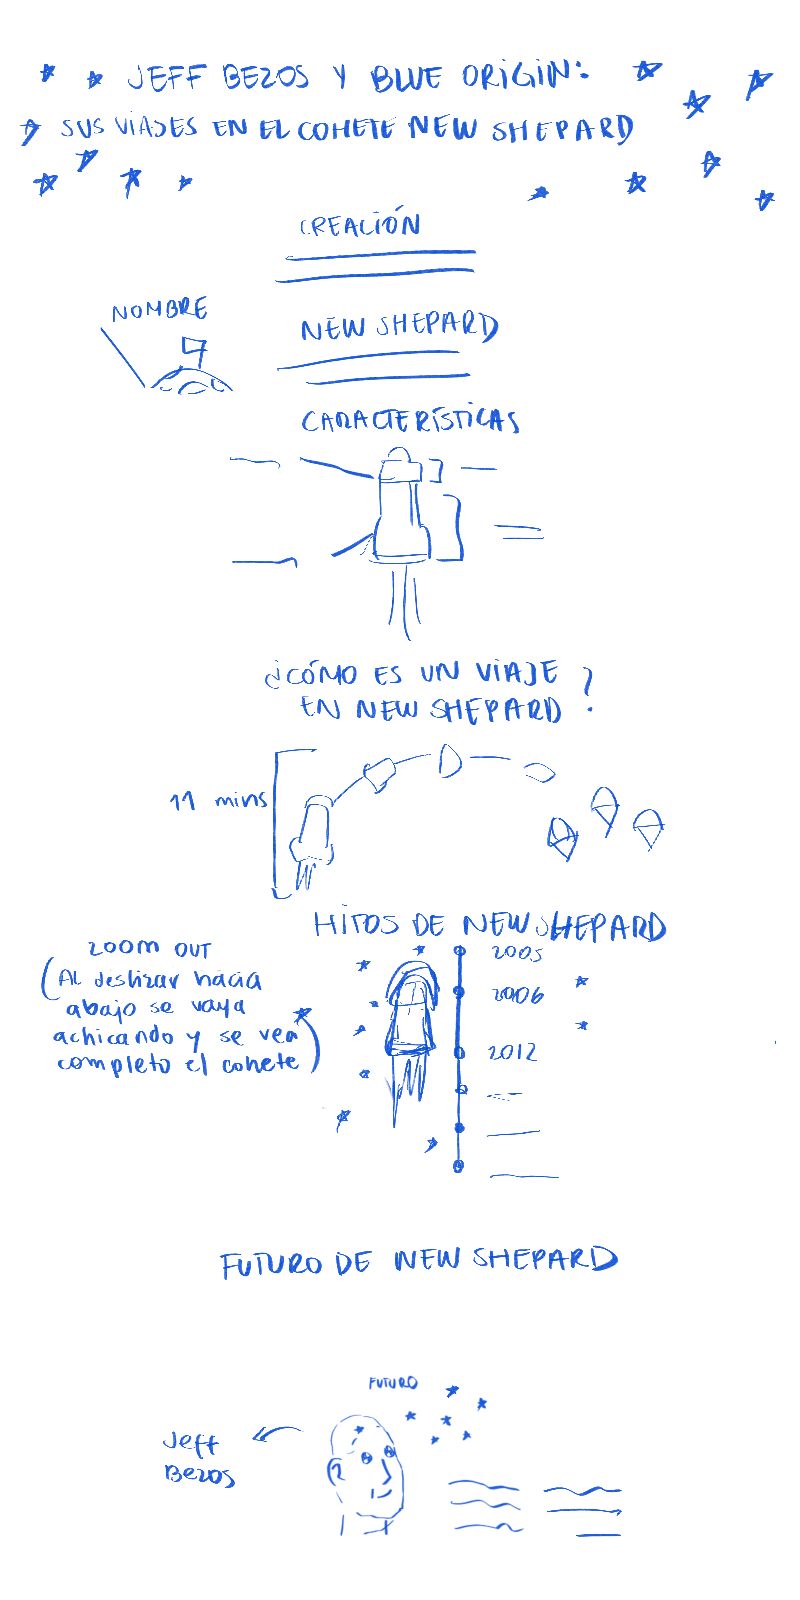 JEFF BEZOS Y BLUE ORIGIN:
SUS VIAJES EN EL COHETE NEW SHEPARD
CREACIÓN
NOMBRE
NEW SHEPARD
CARACTERÍSTICAS
¿CÓMO ES UN VIAJE
EN NEW SHEPARD?
11 mins
HITOS DE NEW SHEPARD
ZOOM OUT
(Al deslizar hacia
abajo se vaya
achicando y se vea
completo el cohete)
2005
2006
2012
FUTURO DE NEW SHEPARD
FUTURO
Jeff
Bezos